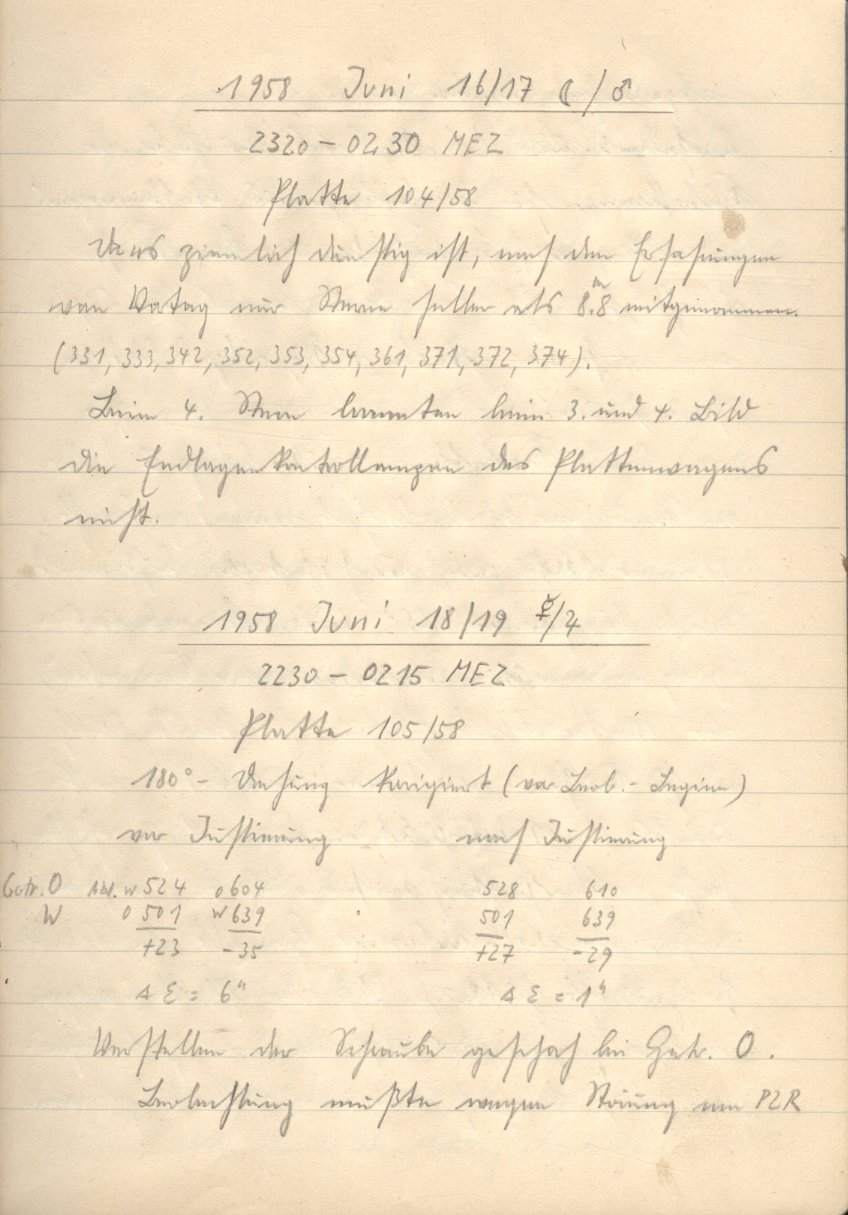 1958 Juni 16/17 ☾/♂
2320 – 0230 MEZ
Platte 104/58
Da es ziemlich dunstig ist, nach den Erfahrungen
vom Vortag nur Sterne heller als 8.8ᵐ mitgenommen.
(331, 333, 342, 352, 353, 354, 361, 371, 372, 374).
Beim 4. Stern brannten beim 3. und 4. Bild
die Endlagenkontrollampen des Plattenwagens
nicht.
1958 Juni 18/19 ☿/♃
2230 – 0215 MEZ
Platte 105/58
180° – Drehung korrigiert (vor Beob. - Beginn)
vor Justierung nach Justierung
Getr. O Abl. W 524 O 604 528 610
W O 501 W 639 501 639
+23 -35 +27 -29
Δ Σ = 6" Δ Σ = 1"
Verstellen der Schraube geschah bei Getr. O.
Beobachtung mußte wegen Störung am PZR